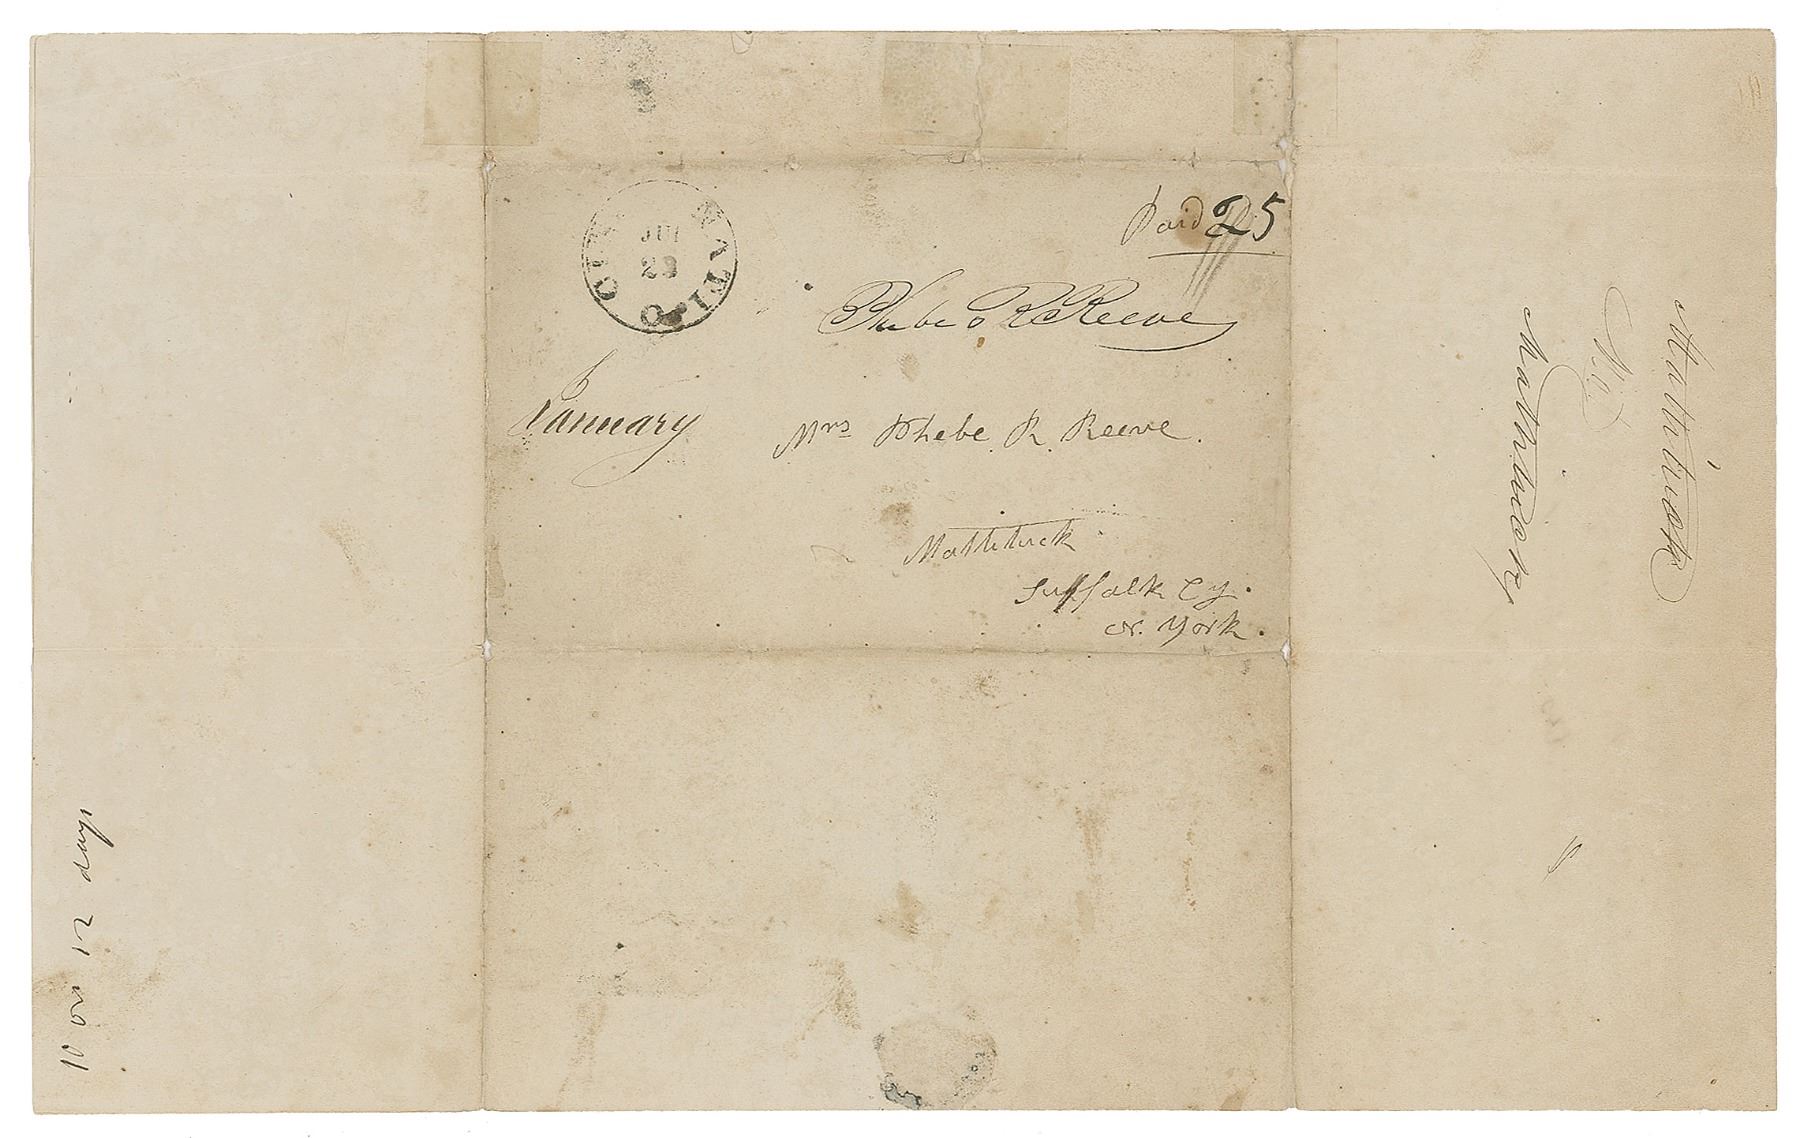 JUL
23
CIN NATI O
Paid 25
Phebe R Reeve
January
Mrs Phebe R Reeve.
Mattituck
Suffolk Cy.
N. York.
Mattituck
Mattituck